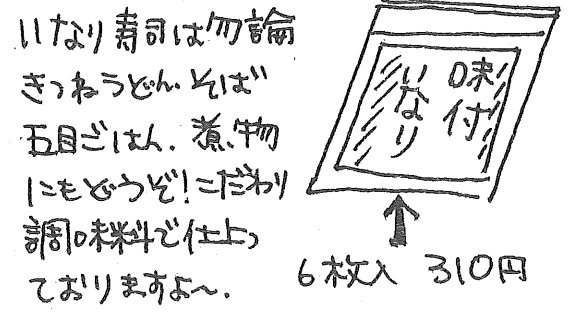 いなり寿司は勿論
きつねうどん、そば
五目ごはん、煮物
にもどうぞ！こだわり
調味料で仕上っ
ておりますよ〜.
味付
いなり
6枚入 310円